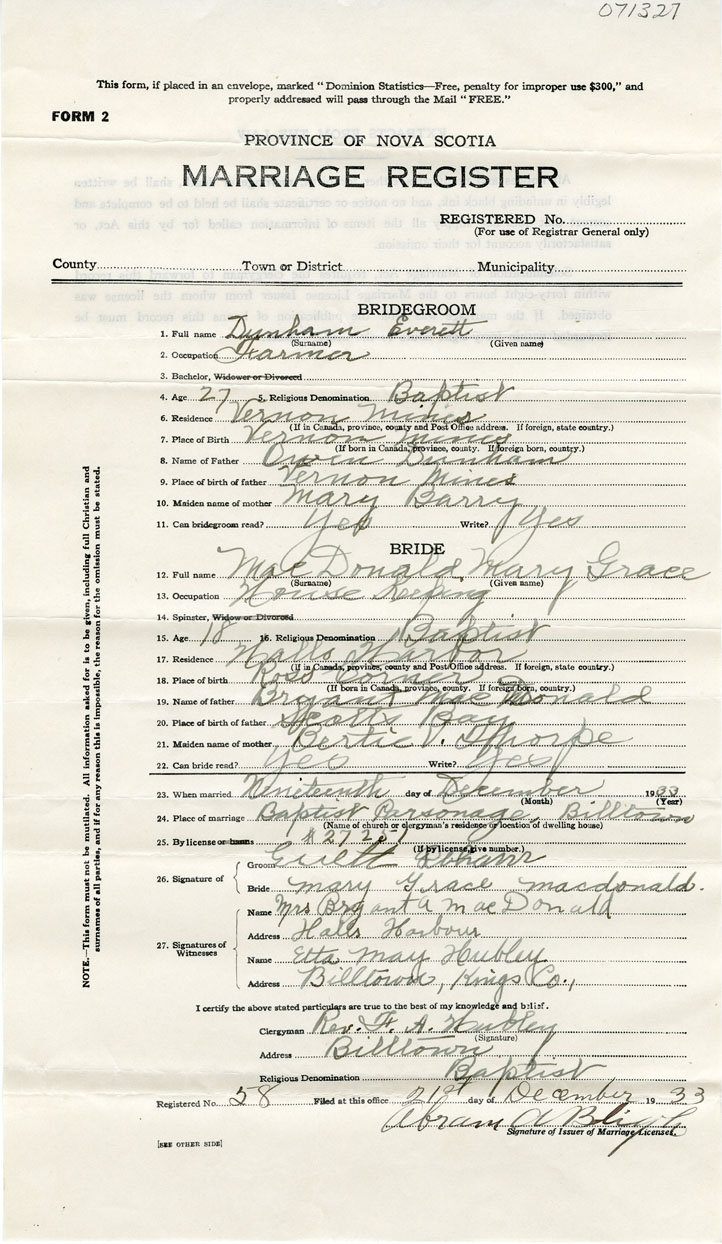 071327
This form, if placed in an envelope, marked "Dominion Statistics—Free, penalty for improper use $300," and
properly addressed will pass through the Mail "FREE."
FORM 2
PROVINCE OF NOVA SCOTIA
MARRIAGE REGISTER
REGISTERED No.
(For use of Registrar General only)
County Town or District Municipality
BRIDEGROOM
1. Full name Dunham Everett
(Surname) (Given name)
2. Occupation Farmer
3. Bachelor, Widower or Divorced
4. Age 27 5. Religious Denomination Baptist
6. Residence Vernon Mines
(If in Canada, province, county and Post Office address. If foreign, state country.)
7. Place of Birth Vernon Mines
(If born in Canada, province, county. If foreign born, country.)
8. Name of Father Owen Dunham
9. Place of birth of father Vernon Mines
10. Maiden name of mother Mary Barry
11. Can bridegroom read? Yes Write? Yes
BRIDE
12. Full name MacDonald Mary Grace
(Surname) (Given name)
13. Occupation House Keeping
14. Spinster, Widow or Divorced
15. Age 18 16. Religious Denomination Baptist
17. Residence Halls Harbor
(If in Canada, province, county and Post Office address. If foreign, state country.)
18. Place of birth Ross Corner
(If born in Canada, province, county. If foreign born, country.)
19. Name of father Bryant MacDonald
20. Place of birth of father Scotts Bay
21. Maiden name of mother Bertie V. Thorpe
22. Can bride read? Yes Write? Yes
23. When married Nineteenth day of December 1933
(Month) (Year)
24. Place of marriage Baptist Parsonage, Billtown
(Name of church or clergyman's residence or location of dwelling house)
25. By license or banns # 27251
(If by license, give number.)
26. Signature of
Groom
Bride mary Grace macdonald.
27. Signatures of Witnesses
Name Mrs Bryant A MacDonald
Address Halls Harbour
Name Etta May Hubley
Address Billtown, Kings Co.,
I certify the above stated particulars are true to the best of my knowledge and belief.
Clergyman Rev. F. A. Hubley
(Signature)
Address Billtown
Religious Denomination Baptist
Registered No. 58 Filed at this office 21st day of December 1933
Abram A Bligh
Signature of Issuer of Marriage Licenses.
[SEE OTHER SIDE]
NOTE.—This form must not be mutilated. All information asked for is to be given, including full Christian and
surnames of all parties, and if for any reason this is impossible, the reason for the omission must be stated.